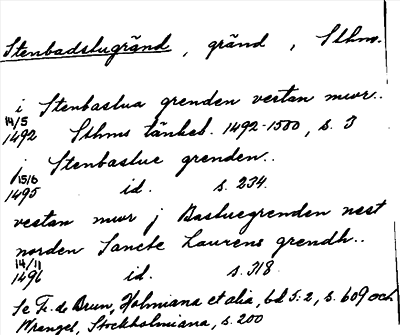 Stenbadstugränd, gränd, Sthm.
i Stenbastua grenden vestan mwr..
14/5
1492 Sthms tänkeb. 1492-1500, s. 3
j Stenbastue grenden..
15/6
1495 id. s. 234.
vestan mwr j Bastuegrenden nest
norden Sancte Laurens grendh..
14/11
1496 id. s. 318.
Se Fr. de Brun, Holmiana et alia, bd 5:2, s. 609 och
Wrangel, Stockholmiana, s. 200